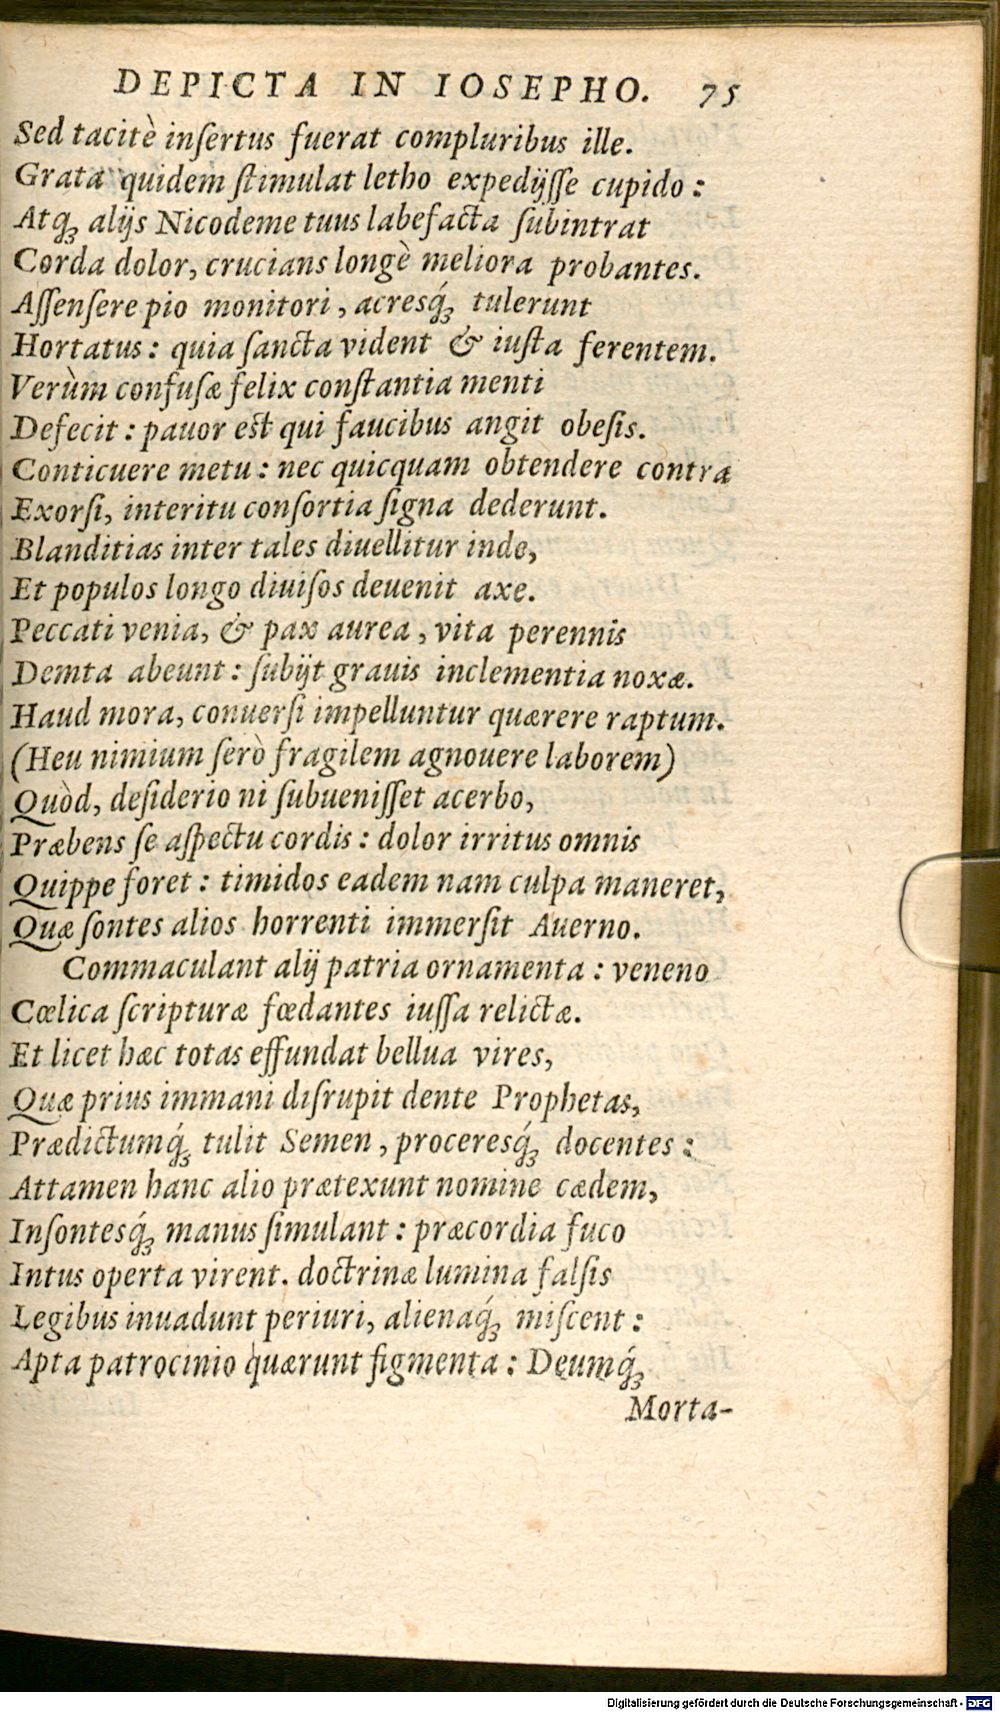 DEPICTA IN IOSEPHO. 75
Sed tacitè inſertus fuerat compluribus ille.
Grata quidem ſtimulat letho expedijſſe cupido:
Atq́ꝫ alijs Nicodeme tuus labefacta ſubintrat
Corda dolor, crucians longè meliora probantes.
Aſſenſere pio monitori, acresq́ꝫ tulerunt
Hortatus: quia ſancta vident & iuſta ferentem.
Verùm confuſæ felix conſtantia menti
Defecit: pauor eſt qui faucibus angit obeſis.
Conticuere metu: nec quicquam obtendere contra
Exorſi, interitu conſortia ſigna dederunt.
Blanditias inter tales diuellitur inde,
Et populos longo diuiſos deuenit axe.
Peccati venia, & pax aurea, vita perennis
Demta abeunt: ſubijt grauis inclementia noxæ.
Haud mora, conuerſi impelluntur quærere raptum.
(Heu nimium ſerò fragilem agnouere laborem)
Quòd, deſiderio ni ſubueniſſet acerbo,
Præbens ſe aſpectu cordis: dolor irritus omnis
Quippe foret: timidos eadem nam culpa maneret,
Quæ ſontes alios horrenti immerſit Auerno.
Commaculant alij patria ornamenta: veneno
Cœlica ſcripturæ fœdantes iuſſa relictæ.
Et licet hæc totas effundat bellua vires,
Quæ prius immani diſrupit dente Prophetas,
Prædictumq́ꝫ tulit Semen, proceresq́ꝫ docentes:
Attamen hanc alio prætexunt nomine cædem,
Inſontesq́ꝫ manus ſimulant: præcordia fuco
Intus operta virent. doctrinæ lumina falſis
Legibus inuadunt periuri, alienaq́ꝫ miſcent:
Apta patrocinio quærunt figmenta: Deumq́ꝫ
Morta-
Digitalisierung gefördert durch die Deutsche Forschungsgemeinschaft - DFG